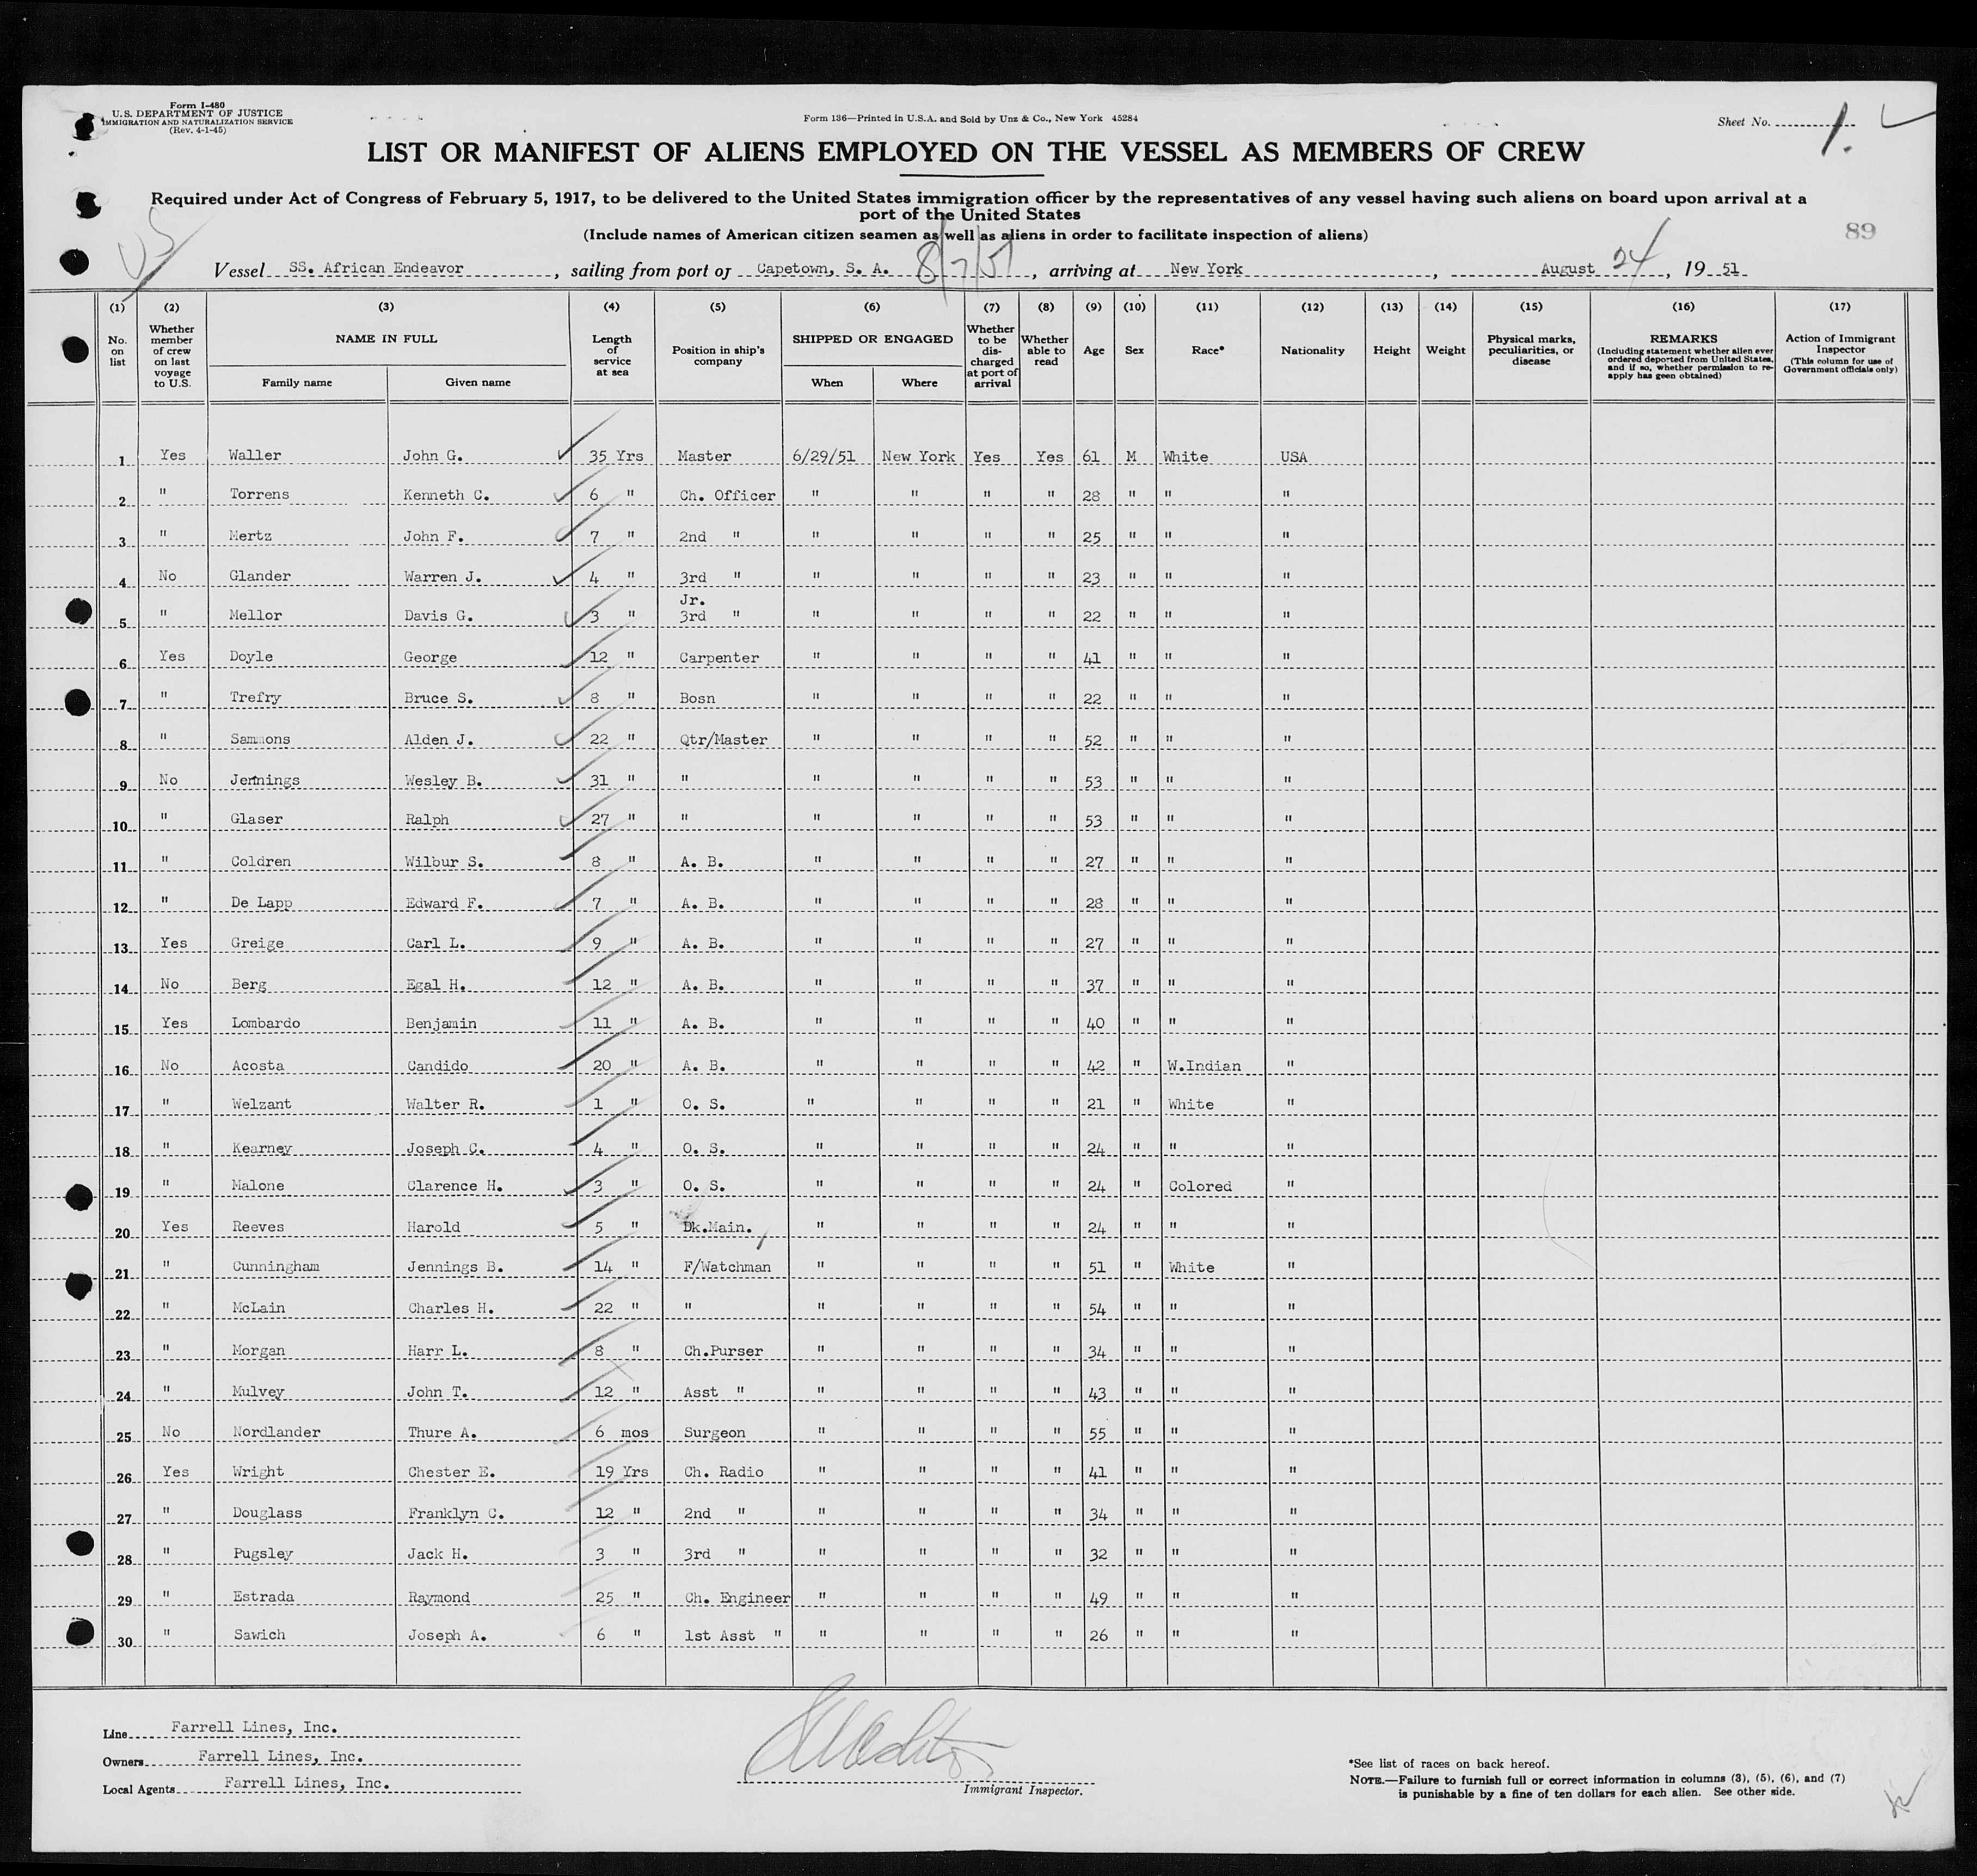 Form I-480
U.S. DEPARTMENT OF JUSTICE
IMMIGRATION AND NATURALIZATION SERVICE
(Rev. 4-1-45)
Form 136—Printed in U.S.A. and Sold by Unz & Co., New York 45284
Sheet No. 1.
LIST OR MANIFEST OF ALIENS EMPLOYED ON THE VESSEL AS MEMBERS OF CREW
Required under Act of Congress of February 5, 1917, to be delivered to the United States immigration officer by the representatives of any vessel having such aliens on board upon arrival at a
port of the United States
(Include names of American citizen seamen as well as aliens in order to facilitate inspection of aliens)
89
US
Vessel SS. African Endeavor, sailing from port of Capetown, S. A. 8/7/51, arriving at New York, August 24, 19 51
(1) (2) (3) (4) (5) (6) (7) (8) (9) (10) (11) (12) (13) (14) (15) (16) (17)
No. on list
Whether member of crew on last voyage to U.S.
NAME IN FULL
Family name
Given name
Length of service at sea
Position in ship's company
SHIPPED OR ENGAGED
When
Where
Whether to be discharged at port of arrival
Whether able to read
Age
Sex
Race*
Nationality
Height
Weight
Physical marks, peculiarities, or disease
REMARKS
(Including statement whether alien ever ordered deported from United States, and if so, whether permission to re-apply has geen obtained)
Action of Immigrant Inspector
(This column for use of Government officials only)
1 Yes Waller John G. 35 Yrs Master 6/29/51 New York Yes Yes 61 M White USA
2 " Torrens Kenneth C. 6 " Ch. Officer " " " " 28 " " "
3 " Mertz John F. 7 " 2nd " " " " " 25 " " "
4 No Glander Warren J. 4 " 3rd " " " " " 23 " " "
Jr.
5 " Mellor Davis G. 3 " 3rd " " " " " 22 " " "
6 Yes Doyle George 12 " Carpenter " " " " 41 " " "
7 " Trefry Bruce S. 8 " Bosn " " " " 22 " " "
8 " Sammons Alden J. 22 " Qtr/Master " " " " 52 " " "
9 No Jennings Wesley B. 31 " " " " " " 53 " " "
10 " Glaser Ralph 27 " " " " " " 53 " " "
11 " Coldren Wilbur S. 8 " A. B. " " " " 27 " " "
12 " De Lapp Edward F. 7 " A. B. " " " " 28 " " "
13 Yes Greige Carl L. 9 " A. B. " " " " 27 " " "
14 No Berg Egal H. 12 " A. B. " " " " 37 " " "
15 Yes Lombardo Benjamin 11 " A. B. " " " " 40 " " "
16 No Acosta Candido 20 " A. B. " " " " 42 " W.Indian "
17 " Welzant Walter R. 1 " O. S. " " " " 21 " White "
18 " Kearney Joseph C. 4 " O. S. " " " " 24 " " "
19 " Malone Clarence H. 3 " O. S. " " " " 24 " Colored "
20 Yes Reeves Harold 5 " Dk.Main. " " " " 24 " " "
21 " Cunningham Jennings B. 14 " F/Watchman " " " " 51 " White "
22 " McLain Charles H. 22 " " " " " " 54 " " "
23 " Morgan Harr L. 8 " Ch.Purser " " " " 34 " " "
24 " Mulvey John T. 12 " Asst " " " " " 43 " " "
25 No Nordlander Thure A. 6 mos Surgeon " " " " 55 " " "
26 Yes Wright Chester E. 19 Yrs Ch. Radio " " " " 41 " " "
27 " Douglass Franklyn C. 12 " 2nd " " " " " 34 " " "
28 " Pugsley Jack H. 3 " 3rd " " " " " 32 " " "
29 " Estrada Raymond 25 " Ch. Engineer " " " " 49 " " "
30 " Sawich Joseph A. 6 " 1st Asst " " " " " 26 " " "
Line Farrell Lines, Inc.
Owners Farrell Lines, Inc.
Local Agents Farrell Lines, Inc.
Immigrant Inspector.
*See list of races on back hereof.
NOTE.—Failure to furnish full or correct information in columns (3), (5), (6), and (7)
is punishable by a fine of ten dollars for each alien. See other side.